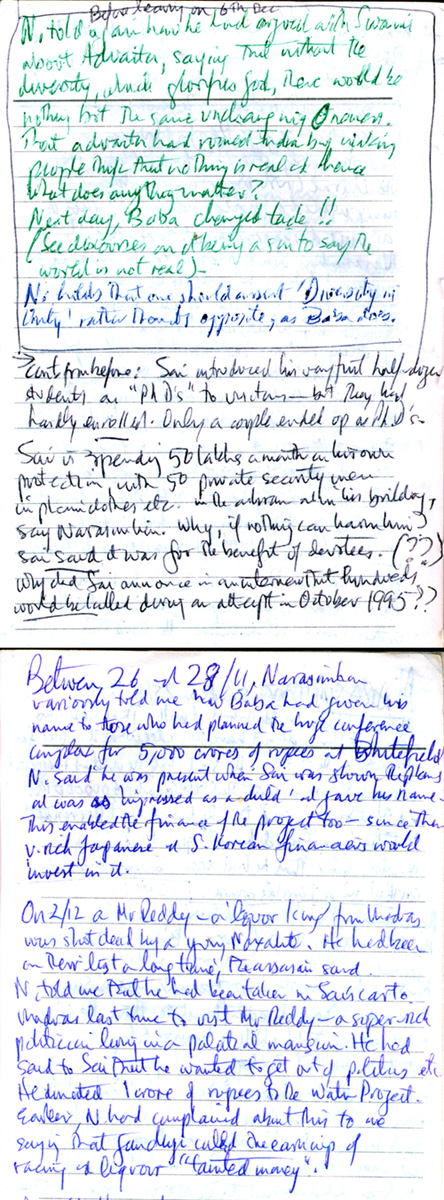 Before leaving on 6th Dec
N. told again how he had argued with Swami
about Advaita, saying that without the
diversity, which glorifies God, there would be
nothing but the same unchanging Oneness.
That advaita had ruined India by making
people think that nothing is real & hence
what does anything matter?
Next day, Baba changed tack!!
(See discourses on it being a sin to say the
world is not real)-
N. holds that one should assert 'Diversity in
Unity' rather than its opposite, as Baba does.
Cont from before: Sai introduced his very first half-dozen
students as "PhD's" to visitors - but they had
hardly enrolled. Only a couple ended up as PhD's
Sai is spending 50 lakhs a month on his own
protection with 50 private security men
in plain clothes etc. in the ashram & in his building,
say Narasimhan. Why, if nothing can harm him?
Sai said it was for the benefit of devotees. (??)
Why did Sai announce in an interview that hundreds
would be killed during an attempt in October 1995??
Between 26 and 28/11, Narasimhan
variously told me how Baba had given his
name to those who had planned the huge conference
complex for 5,000 crores of rupees at Whitefield
N. said he was present when Sai was shown the plans
and was as 'impressed as a child' and gave his name.
This enabled the finance of the project too - since then
v. rich Japanese & S. Korean financiers would
invest in it.
On 2/12 a Mr Reddy - a liquor king from Madras
was shot dead by a young Naxalite. He had been
on their list a long time, the assassin said.
N. told me that he had been taken in Sai's car to
Madras last time to visit Mr Reddy - a super-rich
politician living in a palatial mansion. He had
said to Sai that he wanted to get out of politics etc
He donated 1 crore of rupees to the Water Project.
Earlier, N had complained about this to me
saying that Gandhiji called the earnings of
racing & liquour "tainted money".